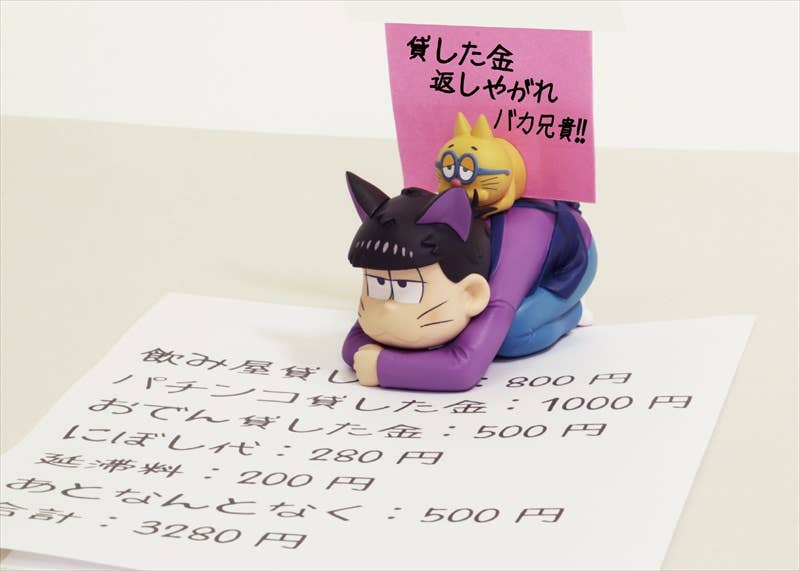 貸した金
返しやがれ
バカ兄貴!!
飲み屋貸し : 800 円
パチンコ貸した金 : 1000 円
おでん貸した金 : 500 円
にぼし代 : 280 円
延滞料 : 200 円
あとなんとなく : 500 円
合計 : 3280 円